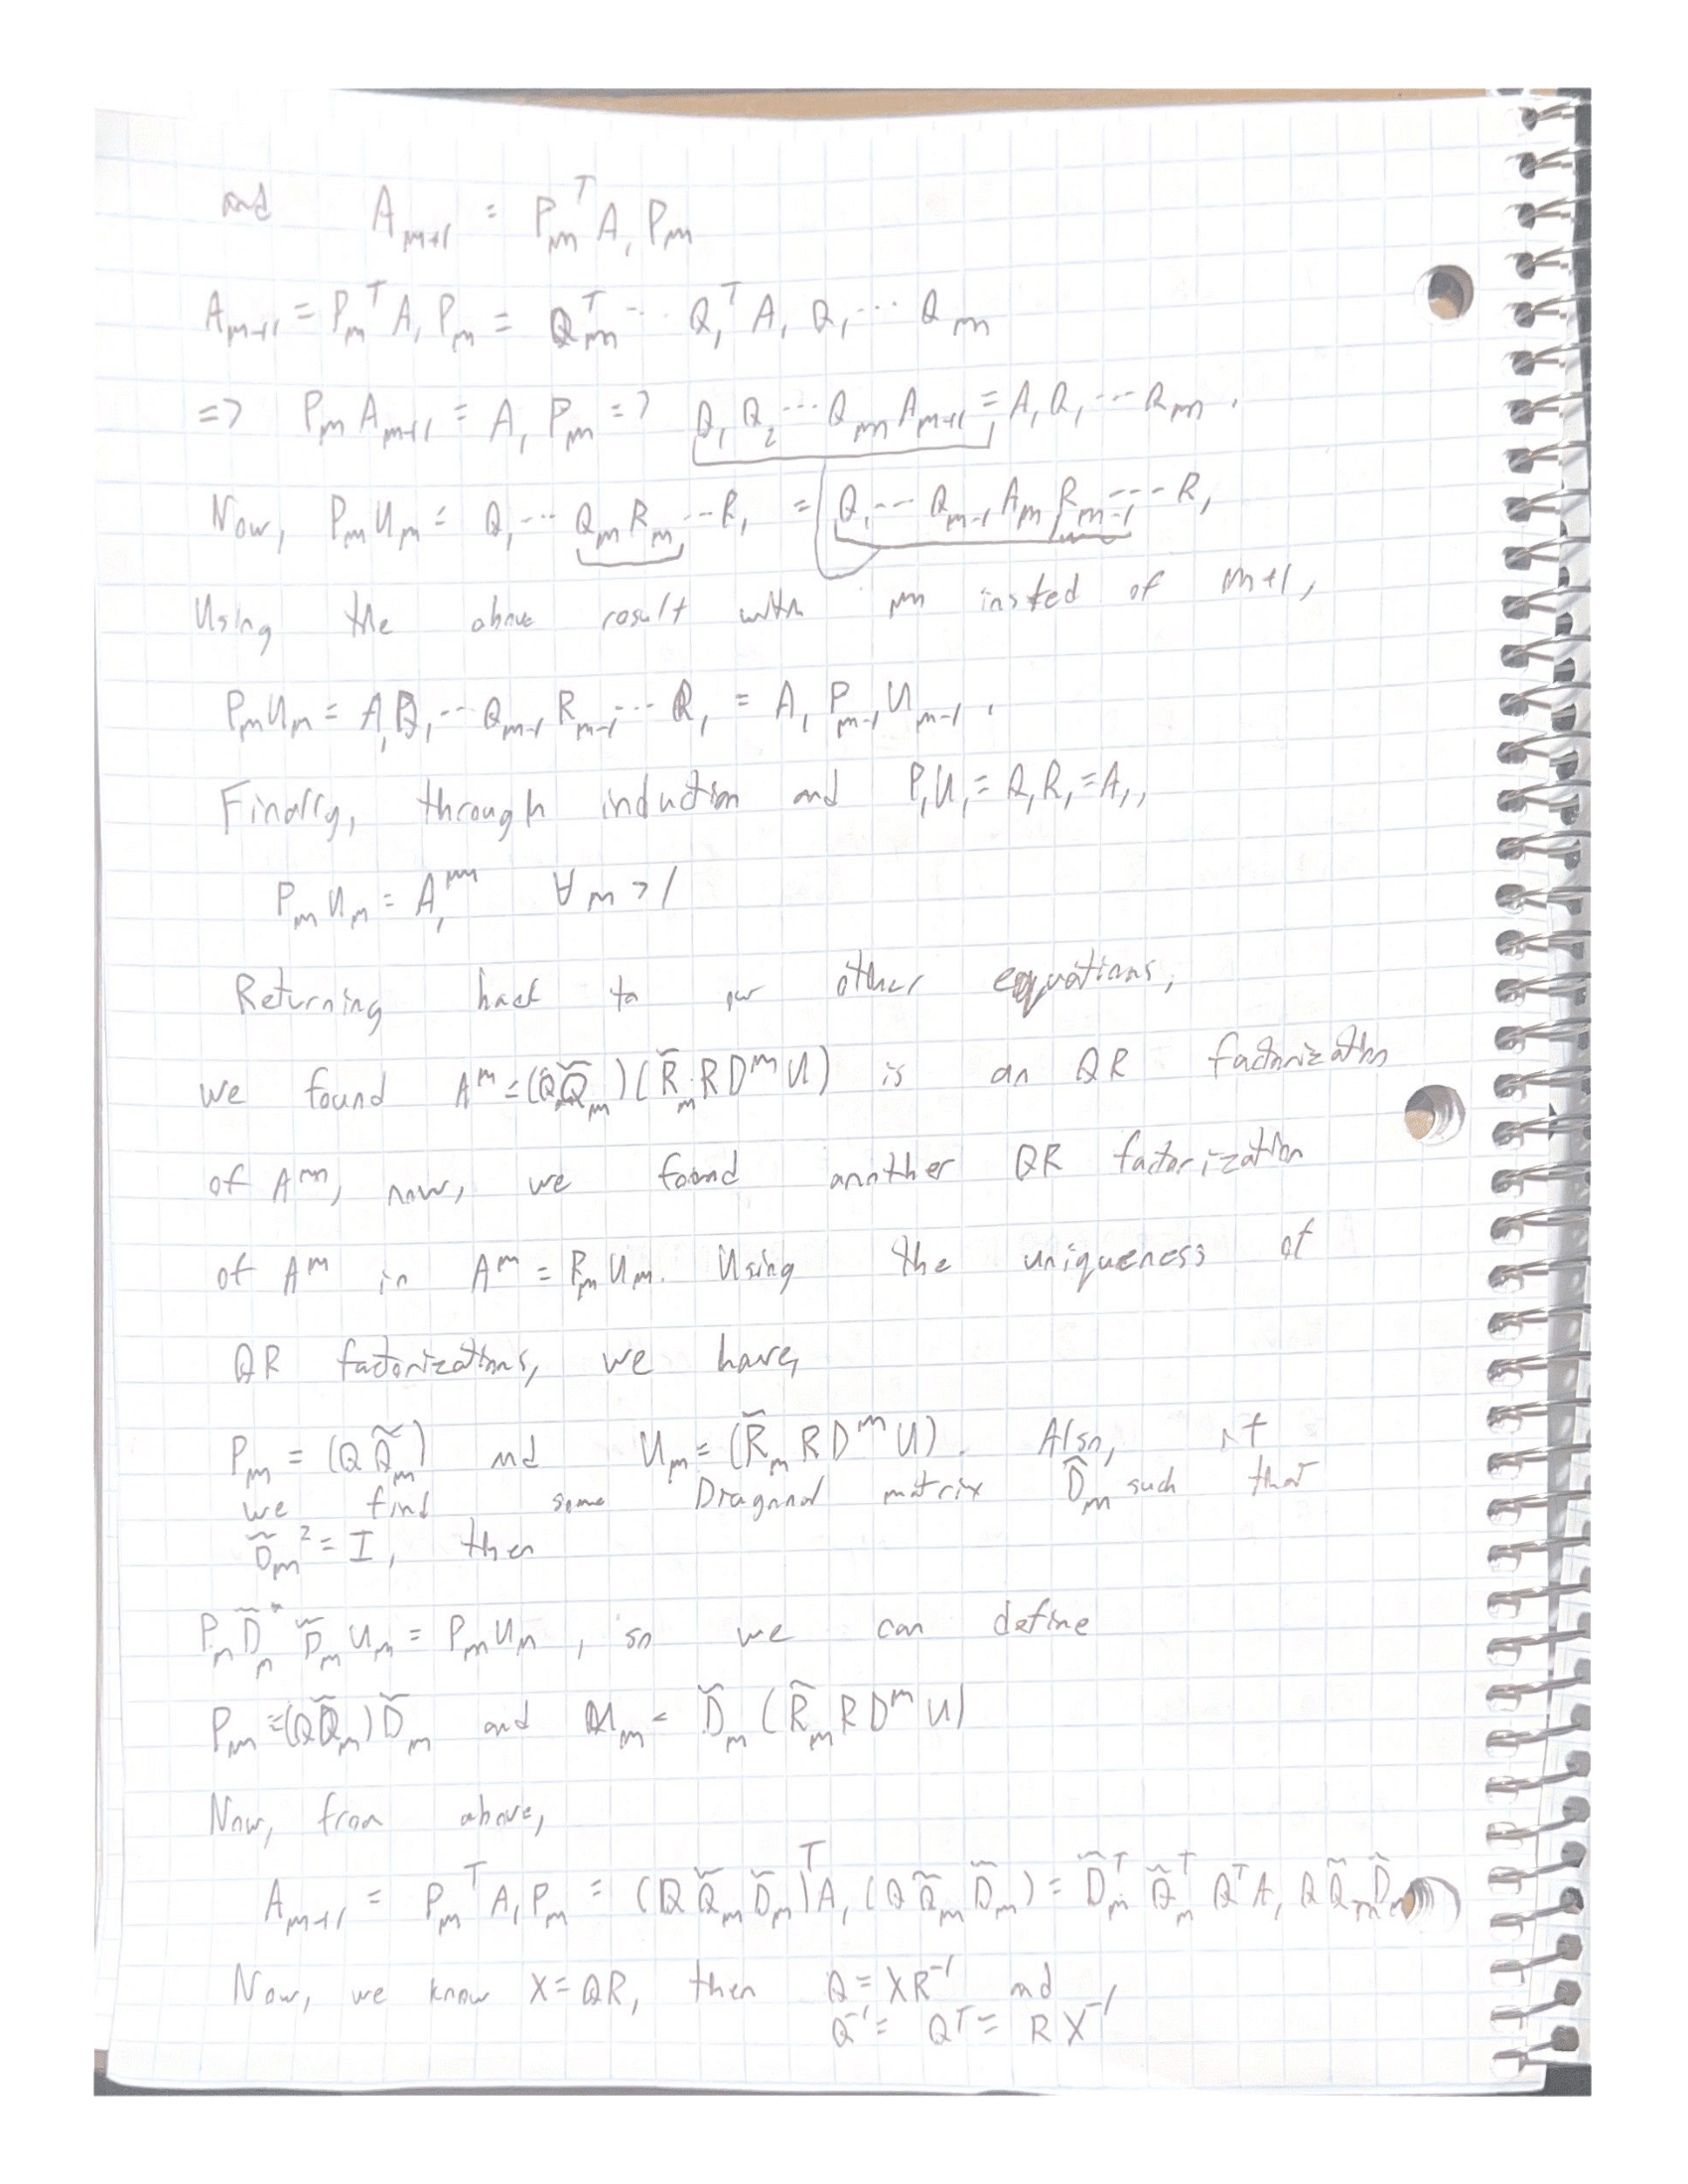 and A_{m+1} = P_m^T A_1 P_m
A_{m+1} = P_m^T A_1 P_m = Q_m^T ··· Q_1^T A_1 Q_1 ··· Q_m
=> P_m A_{m+1} = A_1 P_m => Q_1 Q_2 ··· Q_m A_{m+1} = A_1 Q_1 ··· Q_m.
Now, P_m U_m = Q_1 ··· Q_m R_m ··· R_1 = Q_1 ··· Q_{m-1} A_m R_{m-1} ··· R_1
Using the above result with m insted of m+1,
P_m U_m = A_1 Q_1 ··· Q_{m-1} R_{m-1} ··· R_1 = A_1 P_{m-1} U_{m-1}.
Finally, through induction and P_1 U_1 = Q_1 R_1 = A_1,
P_m U_m = A_1^m ∀ m > 1
Returning back to our other equations,
we found A^m = (Q Q̃_m)(R̃_m R D^m U) is an QR factorization
of A^m, now, we found another QR factorization
of A^m in A^m = P_m U_m. Using the uniqueness of
QR factorizations, we have,
P_m = (Q Q̃_m) and U_m = (R̃_m R D^m U). Also, if
we find some Diagonal matrix D̃_m such that
D̃_m^2 = I, then
P_m D̃_m^* D̃_m U_m = P_m U_m, so we can define
P_m = (Q Q̃_m) D̃_m and U_m = D̃_m (R̃_m R D^m U)
Now, from above,
A_{m+1} = P_m^T A_1 P_m = (Q Q̃_m D̃_m)^T A_1 (Q Q̃_m D̃_m) = D̃_m^T Q̃_m^T Q^T A_1 Q Q̃_m D̃_m
Now, we know X = QR, then Q = XR^{-1} and
Q^{-1} = Q^T = R X^{-1}